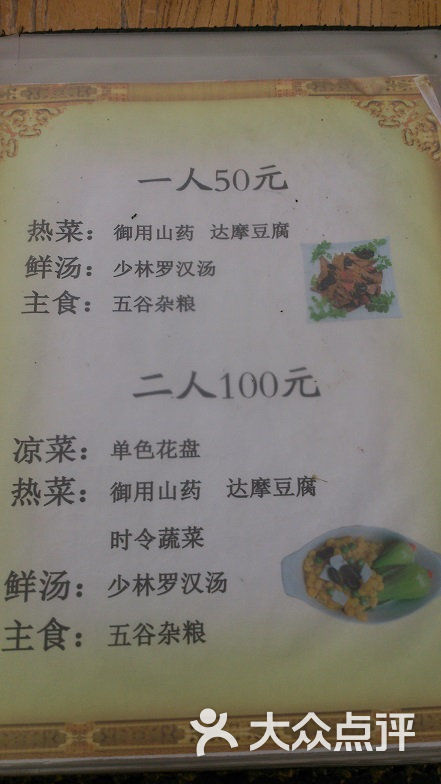 一人50元
热菜：御用山药 达摩豆腐
鲜汤：少林罗汉汤
主食：五谷杂粮
二人100元
凉菜：单色花盘
热菜：御用山药 达摩豆腐
时令蔬菜
鲜汤：少林罗汉汤
主食：五谷杂粮
大众点评